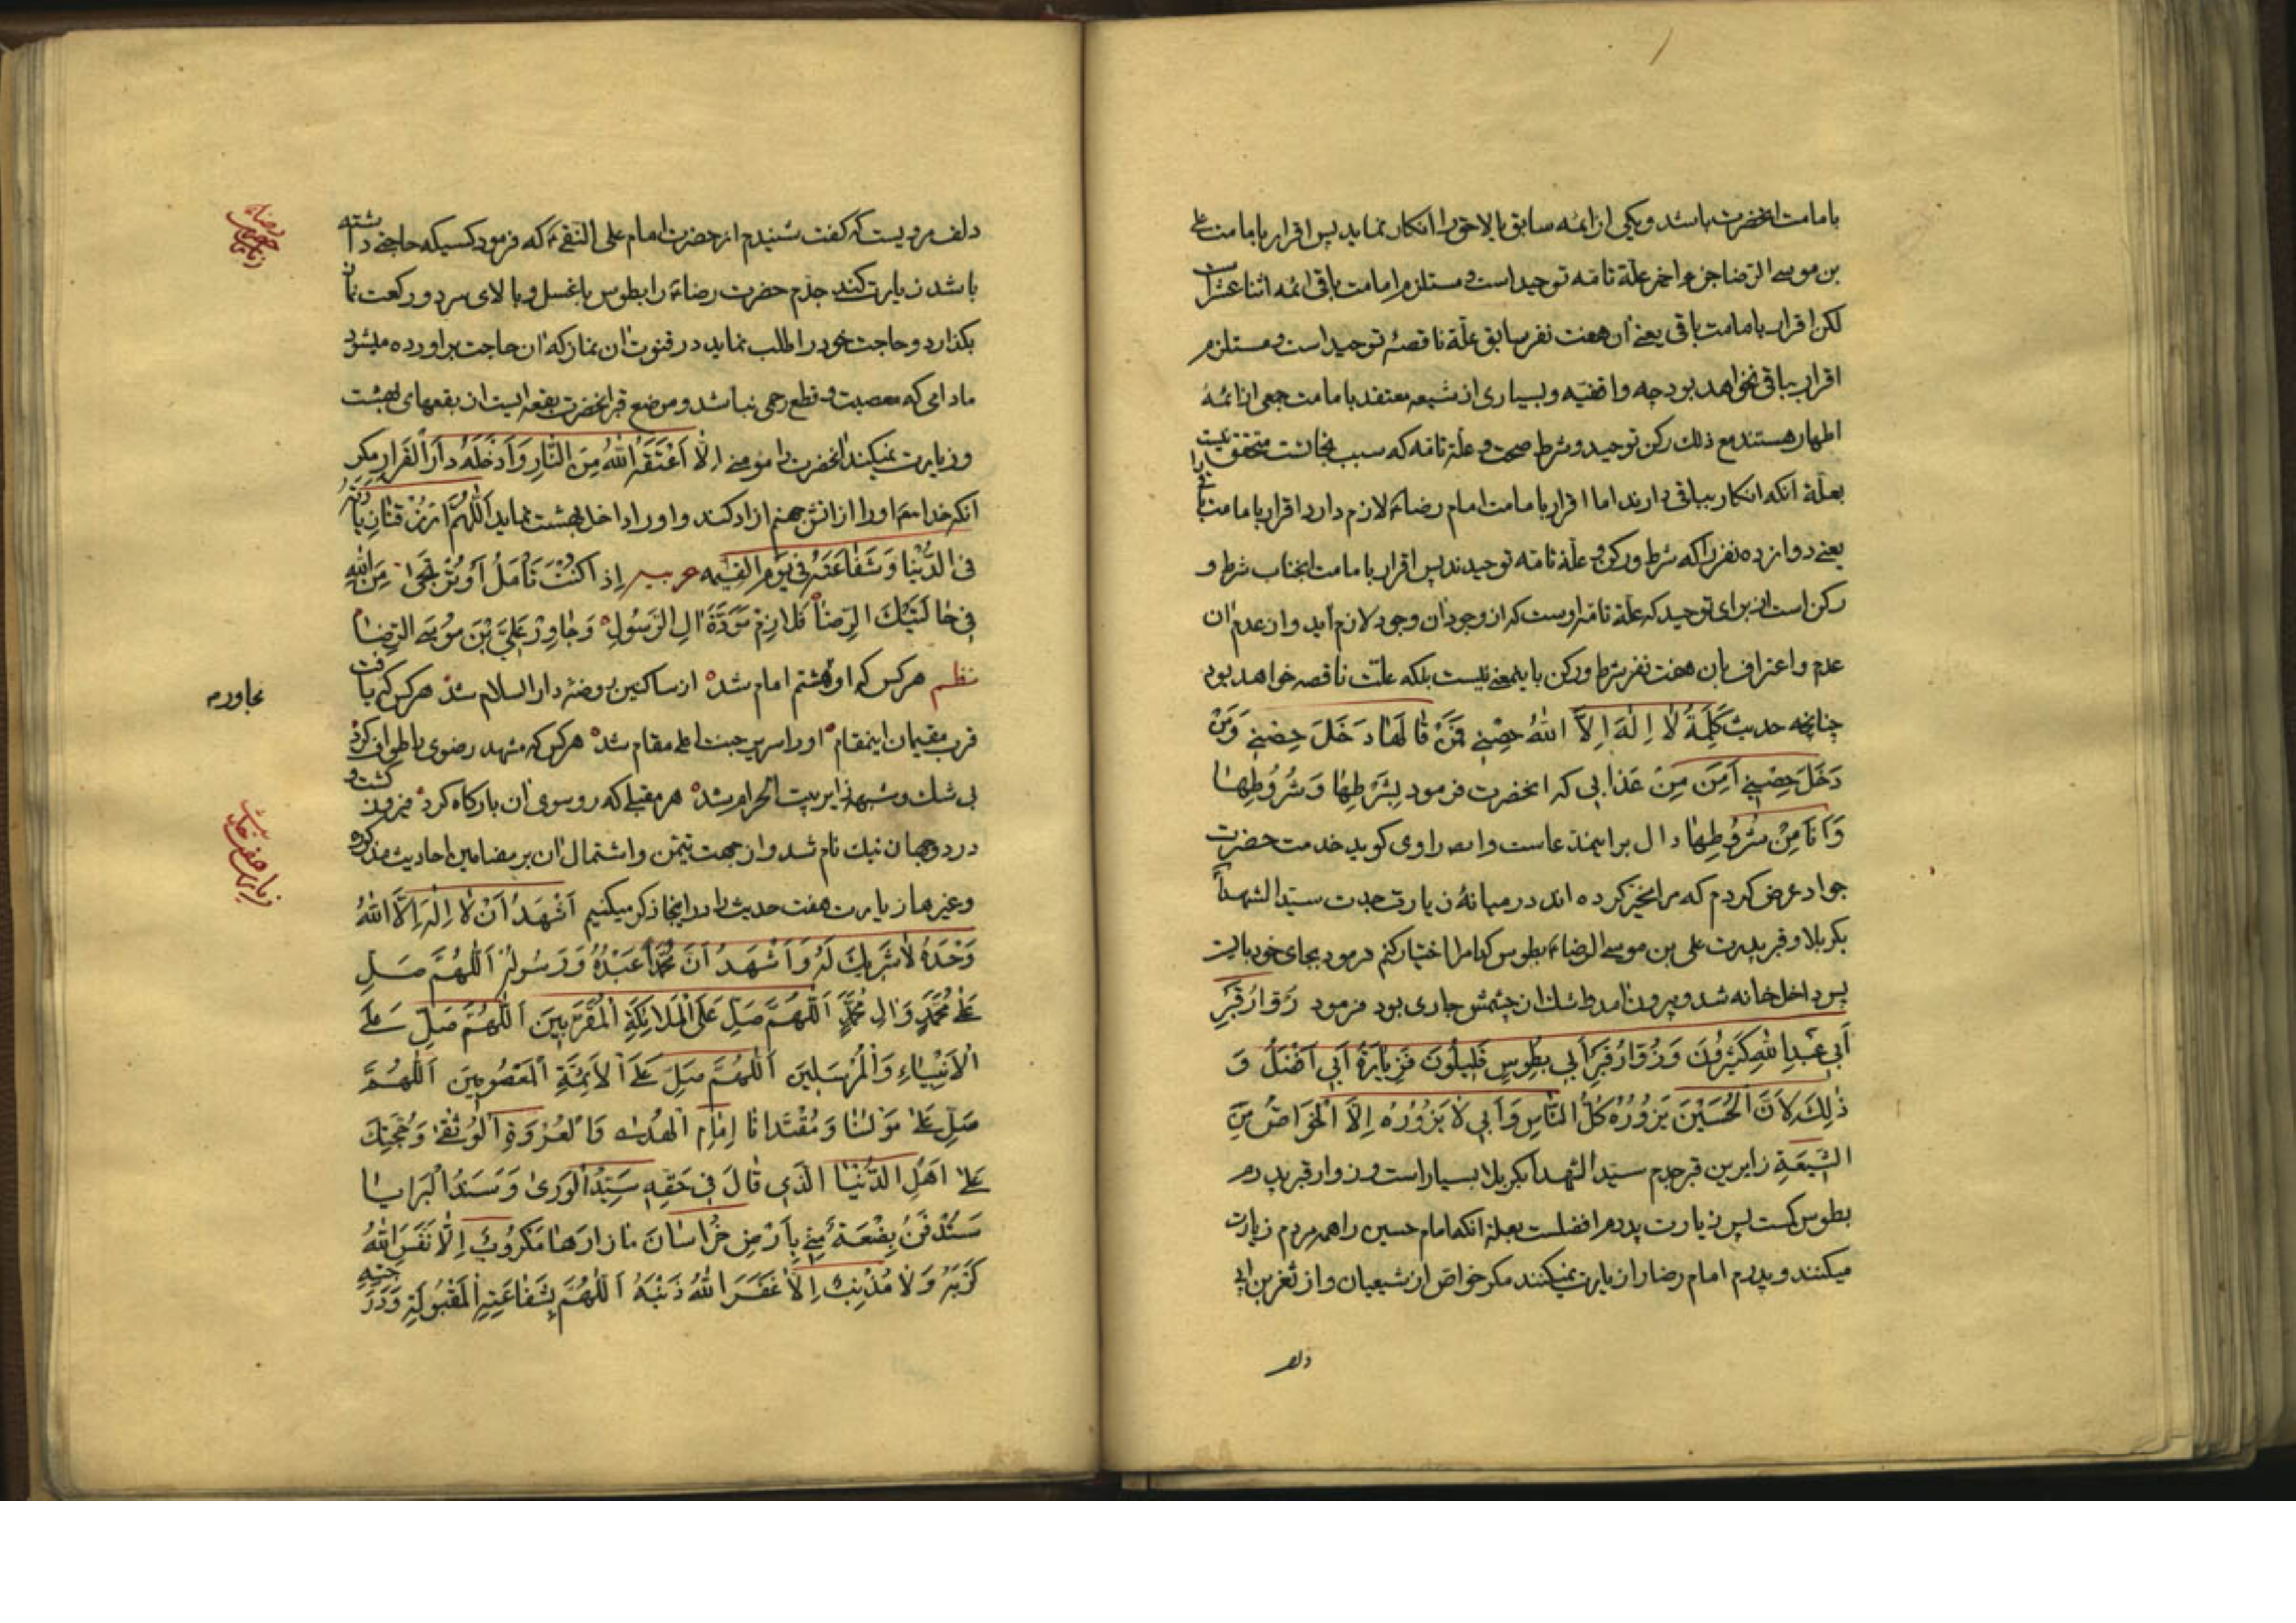 بامامت انحضرت باشد و یکی از ائمه سابق یا لاحق را انکار نماید پس اقرار بامامت علی
بن موسی الرضا جزو اخر علّة تامّه توحید است و مستلزم امامت باقی ائمه اثنا عشر است
لکن اقرار بامامت باقی یعنی ان هفت نفر سابق علّة ناقصهٔ توحید است و مستلزم
اقرار بباقی نخواهد بود چه واقفیّه و بسیاری از شیعه معتقد بامامت جمعی از ائمهٔ
اطهار هستند مع ذلک رکن توحید و شرط صحت و علّة تامه که سبب نجاتست متحقق نیست
بعلّة انکه انکار بباقی دارند اما اقرار بامامت امام رضا ع لازم دارد اقرار بامامت
یعنی دوازده نفر را که شرط و رکن و علّة تامّه توحیدند پس اقرار بامامت انجناب شرط و
رکن است از برای توحید که علّة تامّه اوست که از وجود ان وجود لازم آید و از عدم ان
عدم و اعتراف بان هفت نفر شرط و رکن باینمعنی نیست بلکه علّت ناقصه خواهد بود
چنانچه حدیث كَلِمَةُ لا اِلهَ اِلاَّ اللهُ حِصْنِي فَمَنْ قٰالَهٰا دَخَلَ حِصْنِي وَمَنْ
دَخَلَ حِصْنِي اَمِنَ مِنْ عَذٰابِي که انحضرت فرمود بِشَرْطِهٰا وَشُرُوُطِهٰا
وَاَنَا مِنْ شُرُوُطِهٰا دال بر اینمدعاست و راوی کوید خدمت حضرت
جواد عرض کردم که مرا مخیّر کرده اند در میانهٔ زیارت جدت سیّد الشهدا
بکربلا و قبر پدرت علی بن موسی الرضا ع بطوس کدام را اختیار کنم فرمود بجای خود بایست
پس داخل خانه شد و بیرون امد و اشک از چشمش جاری بود فرمود زُوّارُ قَبْرِ
اَبِي عَبْدِ اللهِ كَثِيرُونَ وَزُوّارُ قَبْرِ اَبِي بِطُوسٍ قَلِيلُونَ فَزِيٰارَةُ اَبِي اَفْضَلُ وَ
ذٰلِكَ لِاَنَّ الْحُسَيْنَ يَزُورُهُ كُلُّ النّٰاسِ وَاَبِي لٰا يَزُورُهُ اِلاَّ الْخَوَاصُّ مِنَ
الشِّيعَةِ زایرین قبر جدم سیّد الشهدا بکربلا بسیار است و زوار قبر پدرم
بطوس کمست پس زیارت پدرم افضلست بعلة انکه امام حسین را همه مردم زیارت
میکنند و پدرم امام رضا را زیارت نمیکنند مکر خواص از شیعیان و از بن ابی
دلف
دلف مرویست که گفت شنیدم از حضرت امام علی النّقی ع که فرمود کسیکه حاجتی داشته
باشد زیارت کند جدّم حضرت رضا ع را بطوس با غسل و بالای سر دو رکعت نماز
بکذارد و حاجت خود را طلب نماید در قنوت ان نماز که ان حاجت براورده میشود
مادامی که معصیت و قطع رحمی نباشد و موضع قبر انحضرت بقعه ایست از بقعهای بهشت
و زیارت نمیکند انحضرت را مؤمنی اِلّٰا اَعْتَقَهُ اللهُ مِنَ النّٰارِ وَاَدْخَلَهُ دٰارَ الْقَرٰارِ مکر
انکه خدا او را از اتش جهنم ازاد کند و او را داخل بهشت نماید اَللّهُمَّ ارْزُقْنٰا زِيٰارَتَهُ
فِي الدُّنْيٰا وَشَفٰاعَتَهُ فِي يَوْمِ الْقِيٰمَه عربیه اِذٰا كُنْتَ تَأْمَلُ اَوْ تُرْتَجَى مِنَ اللهِ
فِي حٰالَتَيْكَ الرِّضٰا فَلٰازِمْ مَوَدَّةَ اٰلِ الرَّسُولِ وَجٰاوِرْ عَلِيَّ بْنَ مُوسَى الرِّضٰا
نظم هر کس که او هشتم امام شد از ساکنین روضهٔ دار السلام شد هر کس که یافت
قرب مقیمان اینمقام او را سریر جنت اعلی مقام شد هر کس که مشهد رضوی را طواف کرد
بی شک و شبهه زایر بیت الحرام شد هر مقبلی که رو سوی ان بارکاه کرد فیروز کشت و
در دو جهان نیک نام شد و از جهت تیمّن و اشتمال ان بر مضامین احادیث مذکوره
و غیرها زیارت هفت حدیث را در اینجا ذکر میکنیم اَشْهَدُ اَنْ لٰا اِلٰهَ اِلَّا اللهُ
وَحْدَهُ لٰا شَرِيكَ لَهُ وَاَشْهَدُ اَنَّ مُحَمَّداً عَبْدُهُ وَرَسُولُهُ اَللّٰهُمَّ صَلِّ
عَلٰى مُحَمَّدٍ وَاٰلِ مُحَمَّدٍ اَللّٰهُمَّ صَلِّ عَلَى الْمَلٰائِكَةِ الْمُقَرَّبِينَ اَللّٰهُمَّ صَلِّ عَلَى
الْاَنْبِيٰاءِ وَالْمُرْسَلِينَ اَللّٰهُمَّ صَلِّ عَلَى الْاَئِمَّةِ الْمَعْصُومِينَ اَللّٰهُمَّ
صَلِّ عَلٰى مَوْلٰنٰا وَمُقْتَدٰانٰا اِمٰامِ الْهُدٰى وَالْعُرْوَةِ الْوُثْقٰى وَحُجَّتِكَ
عَلٰى اَهْلِ الدُّنْيٰا الَّذِي قٰالَ فِي حَقِّهِ سَيِّدُ الْوَرىٰ وَسَنَدُ الْبَرٰايٰا
سَتُدْفَنُ بِضْعَةٌ مِنِّي بِاَرْضِ خُرٰاسٰانَ مٰا زٰارَهٰا مَكْرُوبٌ اِلّٰا نَفَّسَ اللهُ
كُرْبَتَهُ وَلٰا مُذْنِبٌ اِلّٰا غَفَرَ اللهُ ذَنْبَهُ اَللّٰهُمَّ بِشَفٰاعَتِهِ الْمَقْبُولَةِ وَدَرَجَتِهِ
مجاور
زیارت هفت حدیث